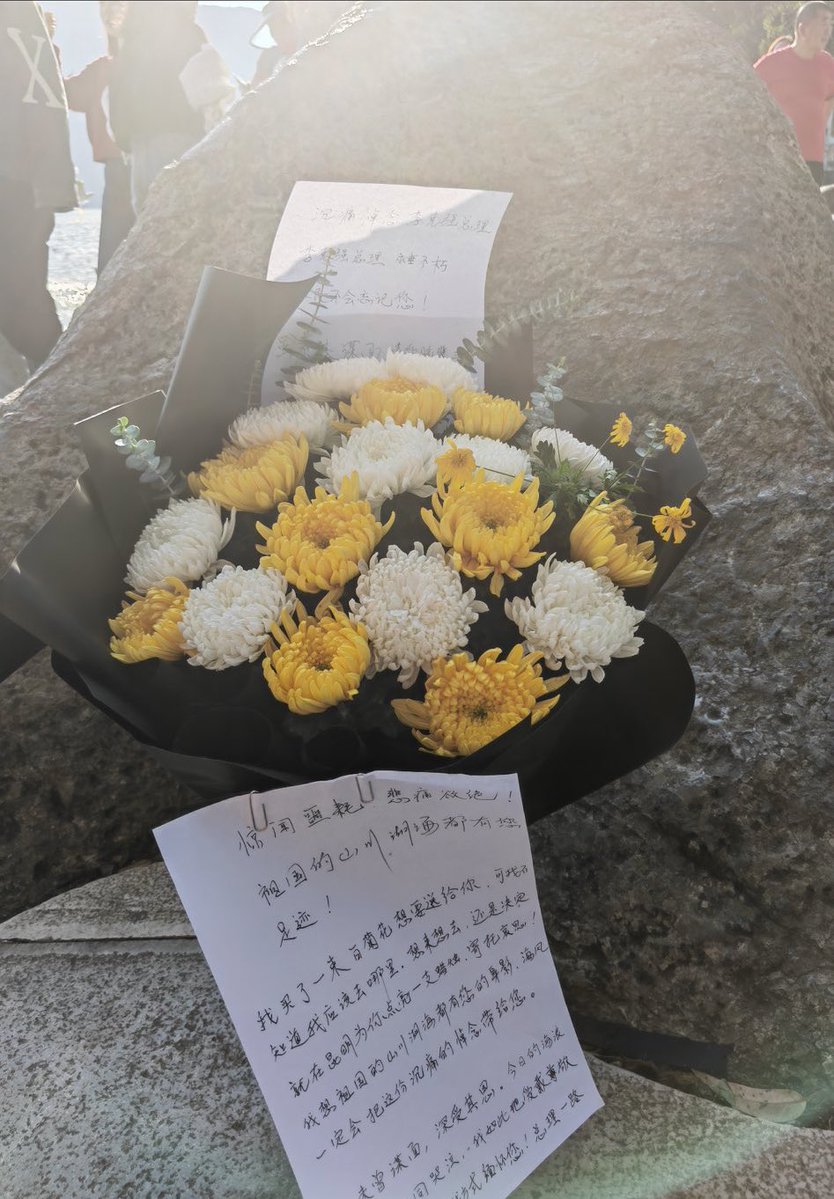 沉痛悼念 李克强总理
李克强总理 永垂不朽
不会忘记您！
谋面
惊闻噩耗，悲痛欲绝！
祖国的山川，湖海都有您
足迹！
我买了一束白菊花想要送给你，可我不
知道我应该去哪里，想来想去，还是决定
就在昆明为你点亮一支蜡烛，寄托哀思！
我想祖国的山川河海都有您的身影，海风
一定会把这份沉痛的悼念带给您。
未曾谋面，深受其恩。今日的海浪
同哭泣，我如此地爱戴尊敬
缅怀您！总理一路
X